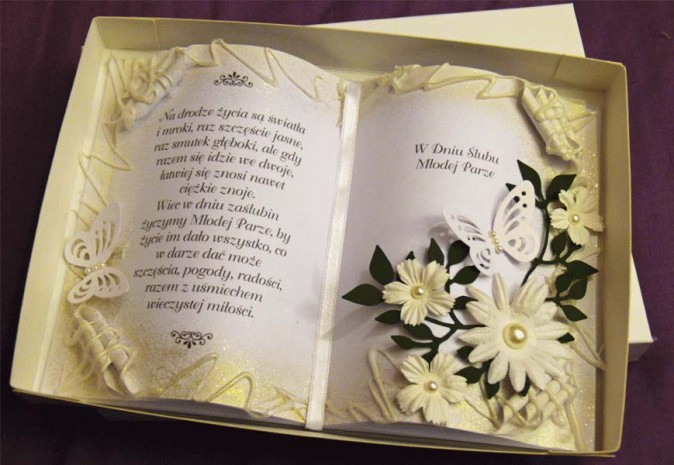 Na drodze życia są światła
i mroki, raz szczęście jasne,
raz smutek głęboki, ale gdy
razem się idzie we dwoje,
łatwiej się znosi nawet
ciężkie znoje.
Więc w dniu zaślubin
życzymy Młodej Parze, by
życie im dało wszystko, co
w darze dać może
szczęścia, pogody, radości,
razem z uśmiechem
wieczystej miłości.
W Dniu Ślubu
Młodej Parze